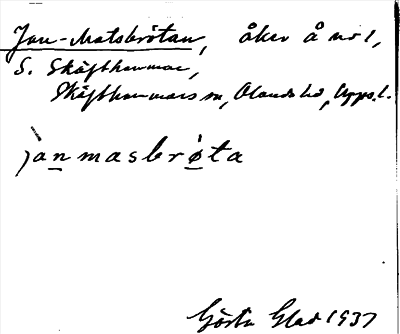 Jan-Matsbrötan, åker å nr 1,
S. Skäfthammar,
Skäfthammars sn, Olands hd, Upps. l.
jan masbrøta
Gösta Glad 1937